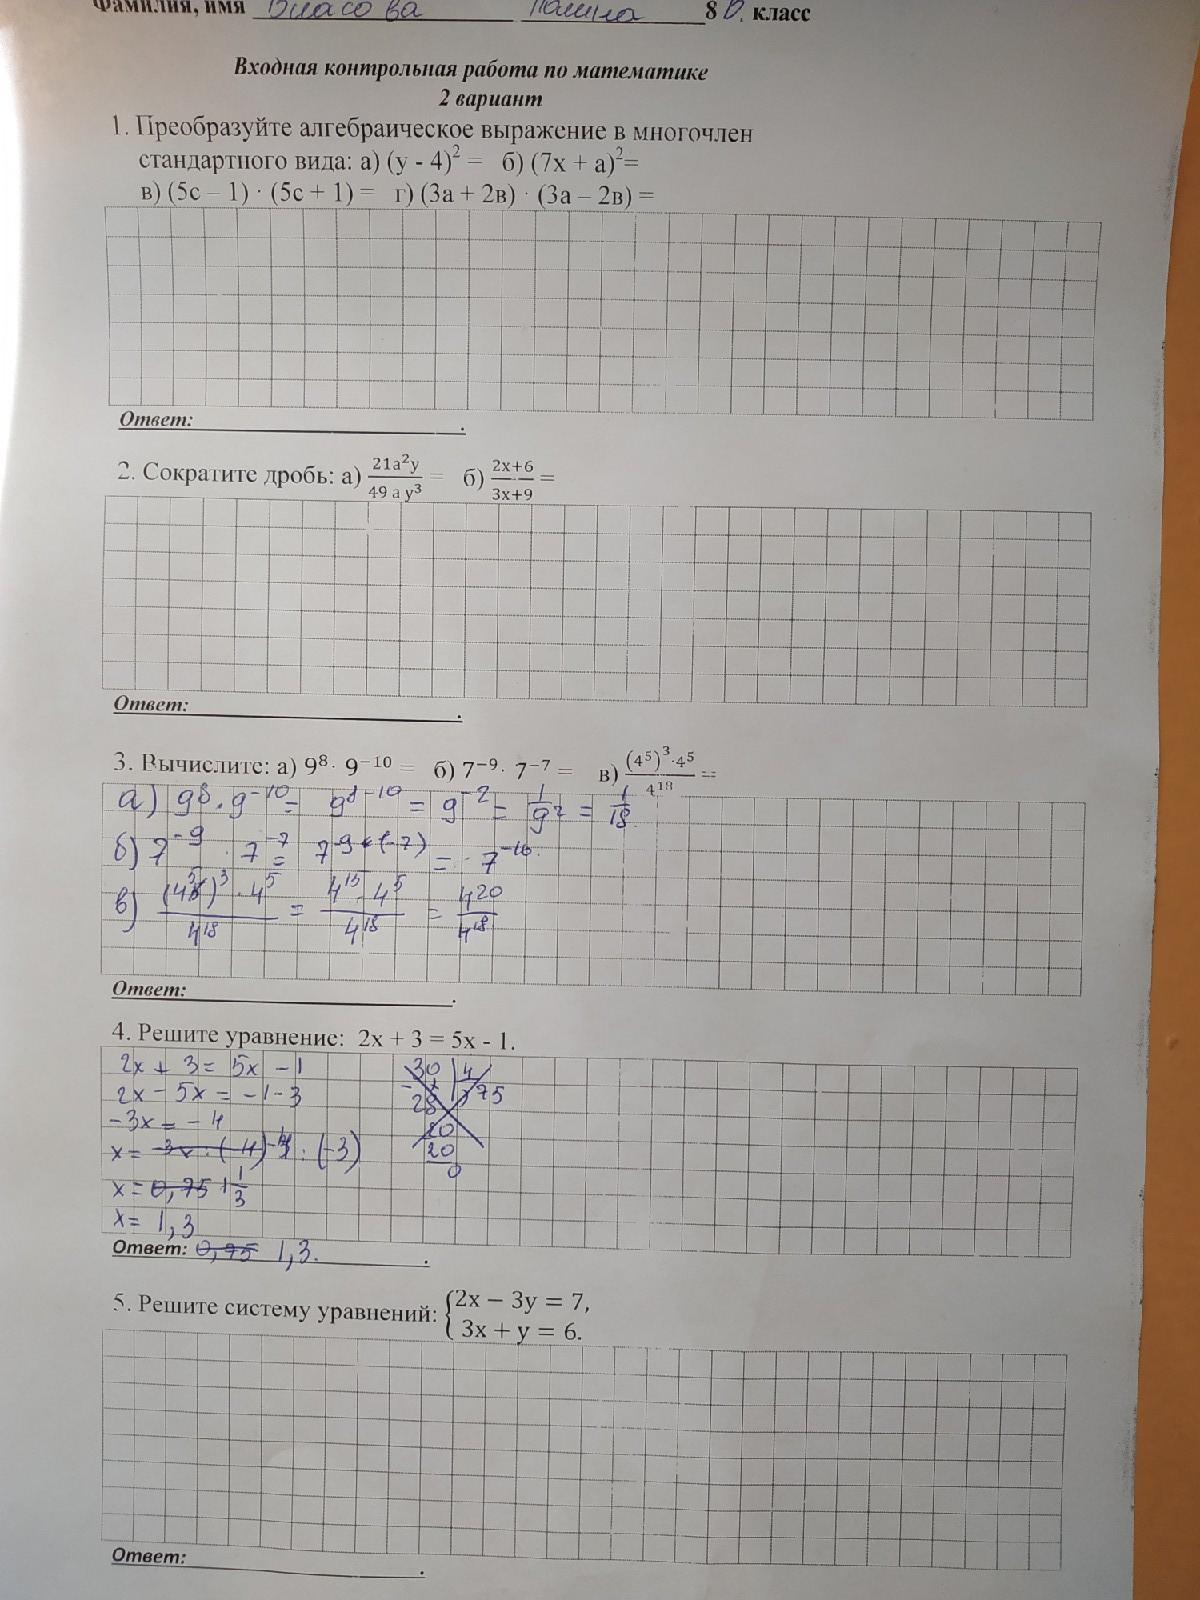 Фамилия, имя Власова Полина 8 В. класс
Входная контрольная работа по математике
2 вариант
1. Преобразуйте алгебраическое выражение в многочлен
стандартного вида: а) (у - 4)² = б) (7х + а)²=
в) (5с – 1) · (5с + 1) = г) (3а + 2в) · (3а – 2в) =
Ответ:
2. Сократите дробь: а) 21a²y/49 a y³ = б) 2x+6/3x+9 =
Ответ:
3. Вычислите: а) 9⁸· 9⁻¹⁰ = б) 7⁻⁹· 7⁻⁷ = в) (4⁵)³·4⁵/4¹⁸ =
а) 9⁸·9⁻¹⁰= 9⁸⁻¹⁰ = 9⁻² = 1/9² = 1/18
б) 7⁻⁹ · 7⁻⁷ = 7⁻⁹⁺⁽⁻⁷⁾ = 7⁻¹⁶.
в) (4⁵)³ · 4⁵/4¹⁸ = 4¹⁵·4⁵/4¹⁸ = 4²⁰/4¹⁸
Ответ:
4. Решите уравнение: 2х + 3 = 5х - 1.
2x + 3 = 5x - 1
2x - 5x = -1 - 3
-3x = -4
x = -4 : (-3)
x = 0,75 1 1/3
x = 1,3
30 4
28 75
20
20
0
Ответ: 0,75 1,3.
5. Решите систему уравнений: {2x − 3y = 7,
3x + y = 6.
Ответ: